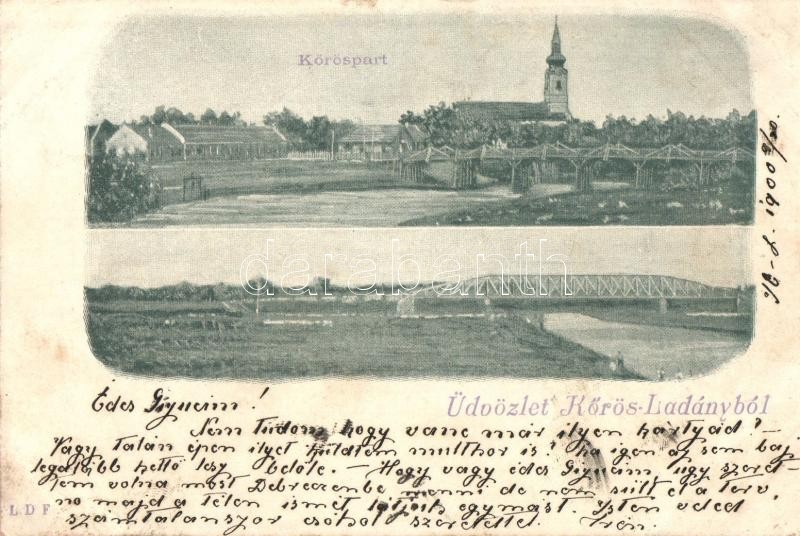 Kőröspart
darabanth
Üdvözlet Kőrös-Ladányból
Édes Gizueim!
Nem tudom hogy vane már ilyen kártyád? -
Vagy talán épen ilyet küldtem multkor is? ha igen az sem baj
legalább kettő lesz belőle. - Hogy vagy édes Gizueim, úgy szeret-
tem volna most Debreczenbe menni de nem sült el a terv,
no majd a télen ismét látjuk egymást. Isten veled
számtalanszor csókol szeretettel. Irén.
L D F